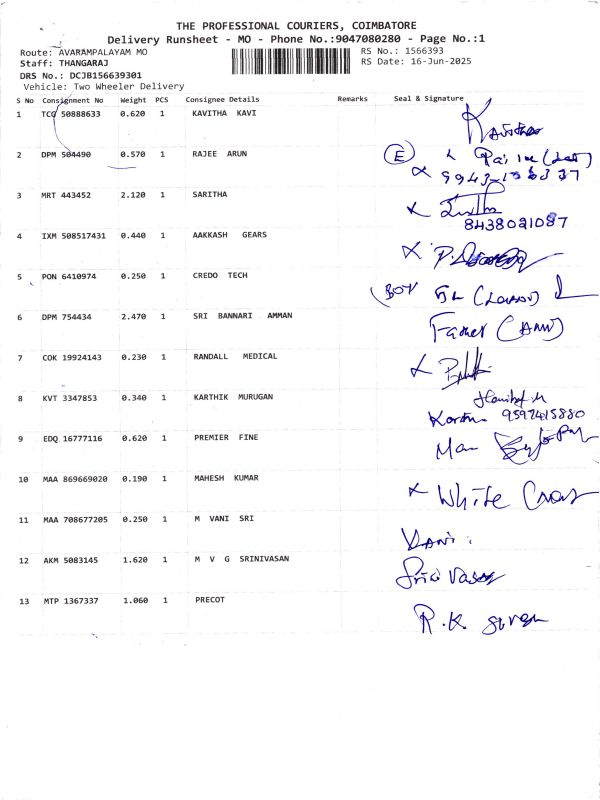 THE PROFESSIONAL COURIERS, COIMBATORE
Delivery Runsheet - MO - Phone No.:9047080280 - Page No.:1
Route: AVARAMPALAYAM MO RS No.: 1566393
Staff: THANGARAJ RS Date: 16-Jun-2025
DRS No.: DCJB156639301
Vehicle: Two Wheeler Delivery
S No Consignment No Weight PCS Consignee Details Remarks Seal & Signature
1 TCG 50888633 0.620 1 KAVITHA KAVI
2 DPM 504490 0.570 1 RAJEE ARUN E
3 MRT 443452 2.120 1 SARITHA
8438021087
4 IXM 508517431 0.440 1 AAKKASH GEARS
5 PON 6410974 0.250 1 CREDO TECH
6 DPM 754434 2.470 1 SRI BANNARI AMMAN
7 COK 19924143 0.230 1 RANDALL MEDICAL
8 KVT 3347853 0.340 1 KARTHIK MURUGAN
9597415880
9 EDQ 16777116 0.620 1 PREMIER FINE
10 MAA 869669020 0.190 1 MAHESH KUMAR White
11 MAA 708677205 0.250 1 M VANI SRI VANI
12 AKM 5083145 1.620 1 M V G SRINIVASAN
13 MTP 1367337 1.060 1 PRECOT R.K